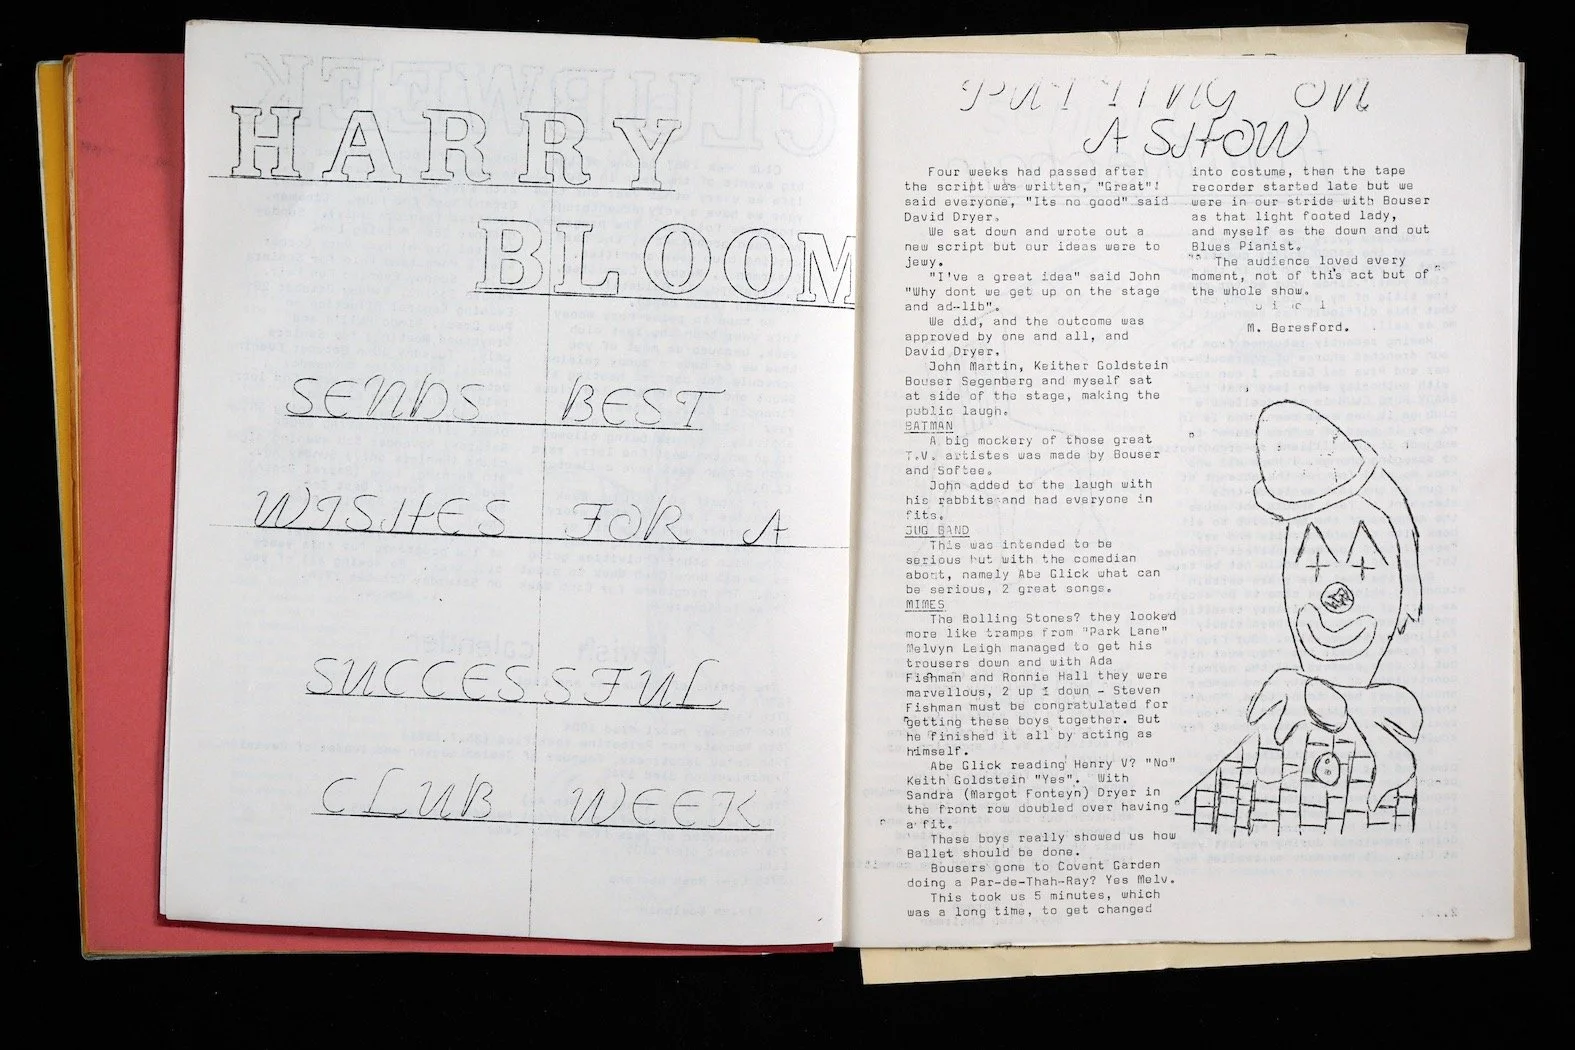 HARRY
BLOOM
SENDS BEST
WISHES FOR A
SUCCESSFUL
CLUB WEEK
PUTTING ON
A SHOW
Four weeks had passed after
the script was written, "Great"!
said everyone, "Its no good" said
David Dryer.
We sat down and wrote out a
new script but our ideas were to
jewy.
"I've a great idea" said John
"Why dont we get up on the stage
and ad-lib".
We did, and the outcome was
approved by one and all, and
David Dryer.
John Martin, Keither Goldstein
Bouser Segenberg and myself sat
at side of the stage, making the
public laugh.
BATMAN
A big mockery of those great
T.V. artistes was made by Bouser
and Softee.
John added to the laugh with
his rabbits and had everyone in
fits.
JUG BAND
This was intended to be
serious but with the comedian
about, namely Abe Glick what can
be serious, 2 great songs.
MIMES
The Rolling Stones? they looked
more like tramps from "Park Lane"
Melvyn Leigh managed to get his
trousers down and with Ada
Fishman and Ronnie Hall they were
marvellous, 2 up 1 down - Steven
Fishman must be congratulated for
getting these boys together. But
he finished it all by acting as
himself.
Abe Glick reading Henry V? "No"
Keith Goldstein "Yes". With
Sandra (Margot Fonteyn) Dryer in
the front row doubled over having
a fit.
These boys really showed us how
Ballet should be done.
Bousers gone to Covent Garden
doing a Par-de-Thah-Ray? Yes Melv.
This took us 5 minutes, which
was a long time, to get changed
into costume, then the tape
recorder started late but we
were in our stride with Bouser
as that light footed lady,
and myself as the down and out
Blues Pianist.
The audience loved every
moment, not of this act but of
the whole show.
M. Beresford.